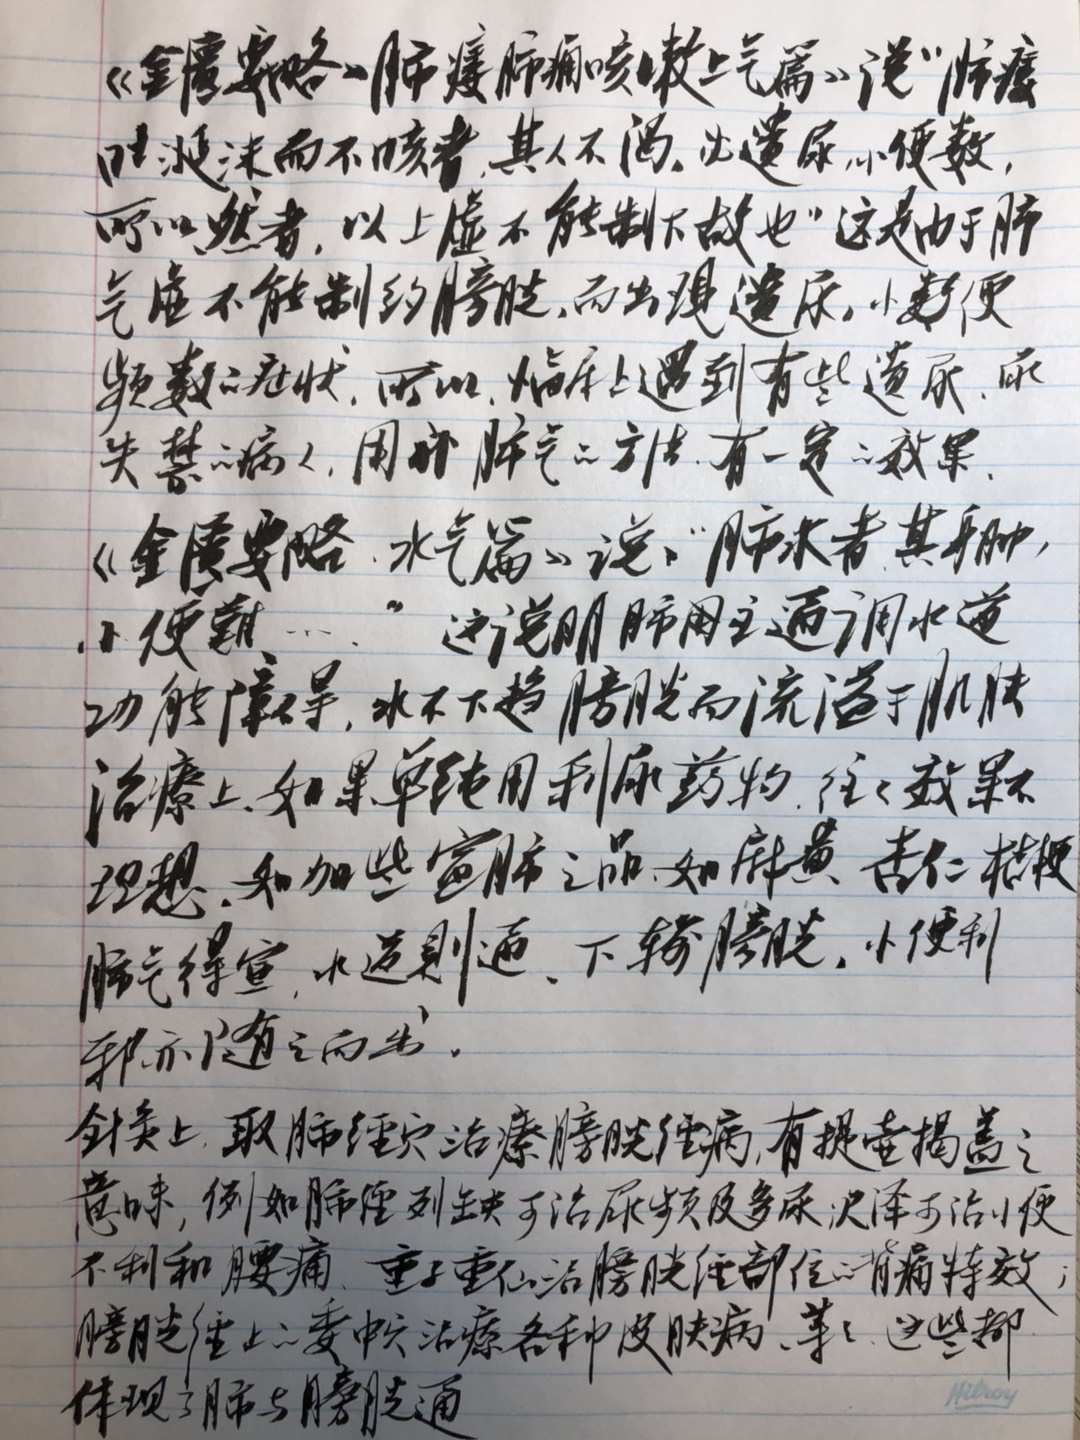 《金匮要略》肺痿肺痈咳嗽上气篇》说“肺痿
吐涎沫而不咳者,其人不渴,必遗尿,小便数,
所以然者,以上虚不能制下故也”这是由于肺
气虚不能制约膀胱,而出现遗尿,小数便
频数的症状,所以,临床上遇到有些遗尿、尿
失禁的病人,用补肺气的方法,有一定的效果,
《金匮要略·水气篇》说,“肺水者,其身肿,
小便難……”这说明肺用主通调水道
功能障碍,水不下趋膀胱而流溢于肌肤
治療上,如果单纯用利尿药物,往々效果不
理想,如加些宣肺之品,如麻黄、杏仁桔梗
肺气得宣,水道则通、下输膀胱,小便利
邪亦随之而出,
针灸上,取肺经穴治療膀胱经病,有提壶揭盖之
意味,例如肺经列缺可治尿频及多尿,尺泽可治小便
不利和腰痛、重子重仙治膀胱经部位的背痛特效;
膀胱经上的委中穴治療各种皮肤病、等々,这些都
体现了肺与膀胱通
Hilroy